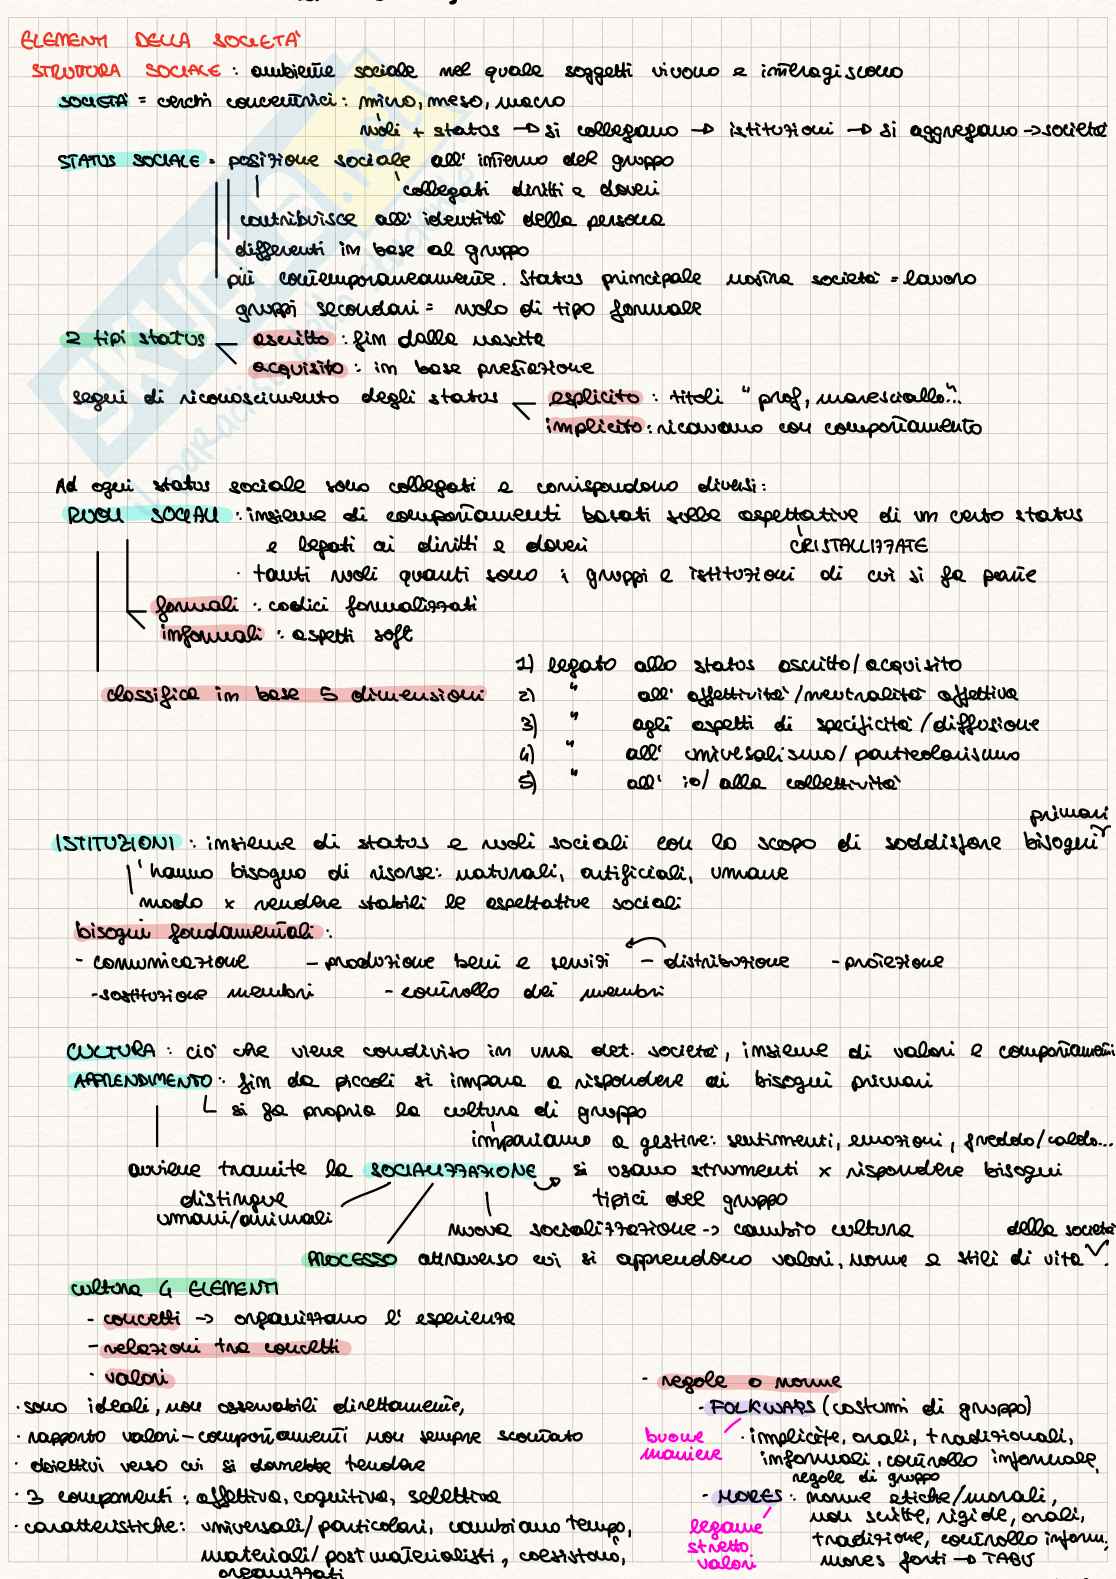 ELEMENTI DELLA SOCIETA'
STRUTTURA SOCIALE : ambiente sociale nel quale soggetti vivono e interagiscono
SOCIETÀ = cerchi concentrici : micro, meso, macro
ruoli + status → si collegano → istituzioni → si aggregano → società
STATUS SOCIALE = posizione sociale all' interno del gruppo
collegati diritti e doveri
contribuisce all' identità della persona
differenti in base al gruppo
più contemporaneamente. Status principale nostra società = lavoro
gruppi secondari = ruolo di tipo formale
2 tipi status
ascritto : fin dalla nascita
acquisito : in base prestazione
segni di riconoscimento degli status
esplicito : titoli " prof, maresciallo..."
implicito : ricavano con comportamento
Ad ogni status sociale sono collegati e corrispondono diversi :
RUOLI SOCIALI : insieme di comportamenti basati sulle aspettative di un certo status
e legati ai diritti e doveri
CRISTALLIZZATE
· tanti ruoli quanti sono i gruppi e istituzioni di cui si fa parte
formali : codici formalizzati
informali : aspetti soft
classifica in base 5 dimensioni
1) legato allo status ascritto/acquisito
2) " all' affettività/neutralità affettiva
3) " agli aspetti di specificità/diffusione
4) " all' universalismo/particolarismo
5) " all' io/ alla collettività
primari
ISTITUZIONI : insieme di status e ruoli sociali con lo scopo di soddisfare bisogni
hanno bisogno di risorse: naturali, artificiali, umane
modo x rendere stabili le aspettative sociali
bisogni fondamentali :
- comunicazione - produzione beni e servizi - distribuzione - protezione
- sostituzione membri - controllo dei membri
CULTURA : ciò che viene condiviso in una det. società, insieme di valori e comportamenti
APPRENDIMENTO : fin da piccoli si impara a rispondere ai bisogni primari
si fa propria la cultura di gruppo
impariamo a gestire: sentimenti, emozioni, freddo/caldo...
avviene tramite la SOCIALIZZAZIONE si usano strumenti x rispondere bisogni
tipici del gruppo
distingue
umani/animali
nuova socializzazione → cambio cultura
della società
PROCESSO attraverso cui si apprendono valori, norme e stili di vita .
cultura 4 ELEMENTI
- concetti → organizzano l' esperienza
- relazioni tra concetti
· valori
· sono ideali, non osservabili direttamente,
· rapporto valori-comportamenti non sempre scontato
· obiettivi verso cui si dovrebbe tendere
· 3 componenti : affettiva, cognitiva, selettiva
· caratteristiche: universali/particolari, cambiano tempo,
materiali/post materialisti, coesistono,
organizzati
- regole o norme
- FOLKWAYS (costumi di gruppo)
buone
maniere
· implicite, orali, tradizionali,
informali, controllo informale,
regole di gruppo
- MORES : norme etiche/morali,
non scritte, rigide, orali,
tradizione, controllo inform,
mores forti → TABU
legame
stretto
valori